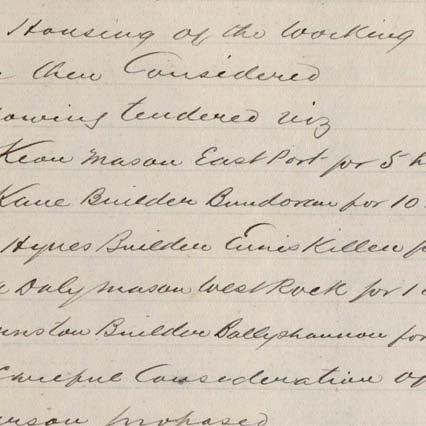 Housing of the Working
then Considered
owing tendered viz
Keon Mason East Port for 5 h
Kane Builder Bundoran for 10
Hynes Builder Enniskillen f
Daly Mason West Rock for 1
nston Builder Ballyshannon for
Careful Consideration of
erson proposed